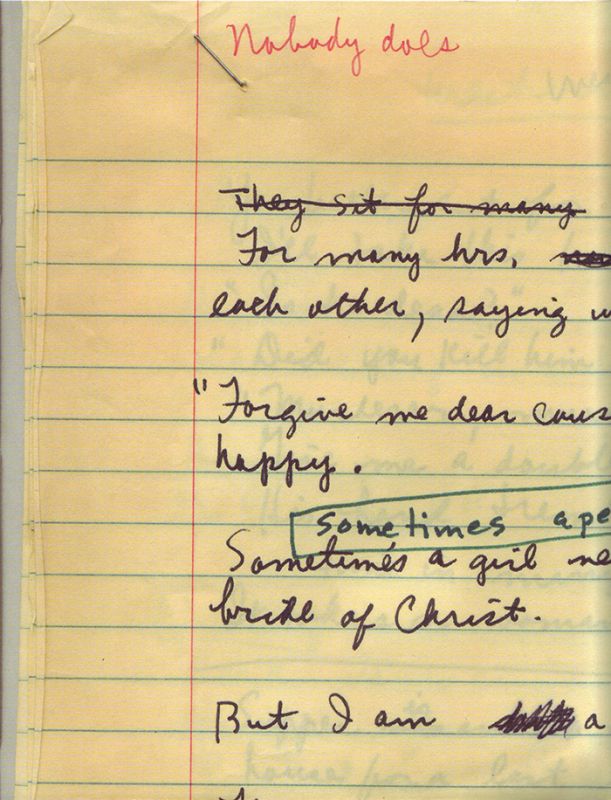 Nobody does
They sit for many
For many hrs.
each other, saying
"Forgive me dear
happy.
sometimes a
Sometimes a girl
bride of Christ.
But I am a